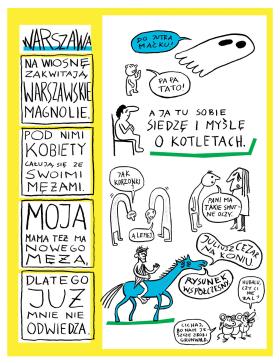 WARSZAWA
NA WIOSNĘ
ZAKWITAJĄ
WARSZAWSKIE
MAGNOLIE.
POD NIMI
KOBIETY
CAŁUJĄ SIĘ ZE
SWOIMI
MĘŻAMI.
MOJA
MAMA TEŻ MA
NOWEGO
MĘŻA,
DLATEGO
JUŻ
MNIE NIE
ODWIEDZA.
DO JUTRA
MAĆKU!
PA PA
TATO!
A JA TU SOBIE
SIEDZĘ I MYŚLĘ
O KOTLETACH.
JAK
KORZONKI
A LEPIEJ
PANI MA
TAKIE SMUT-
NE OCZY.
JULIUSZ CEZAR
NA KONIU
RYSUNEK
WSPÓŁCZESNY
CICHAJ,
GRUNWALD.